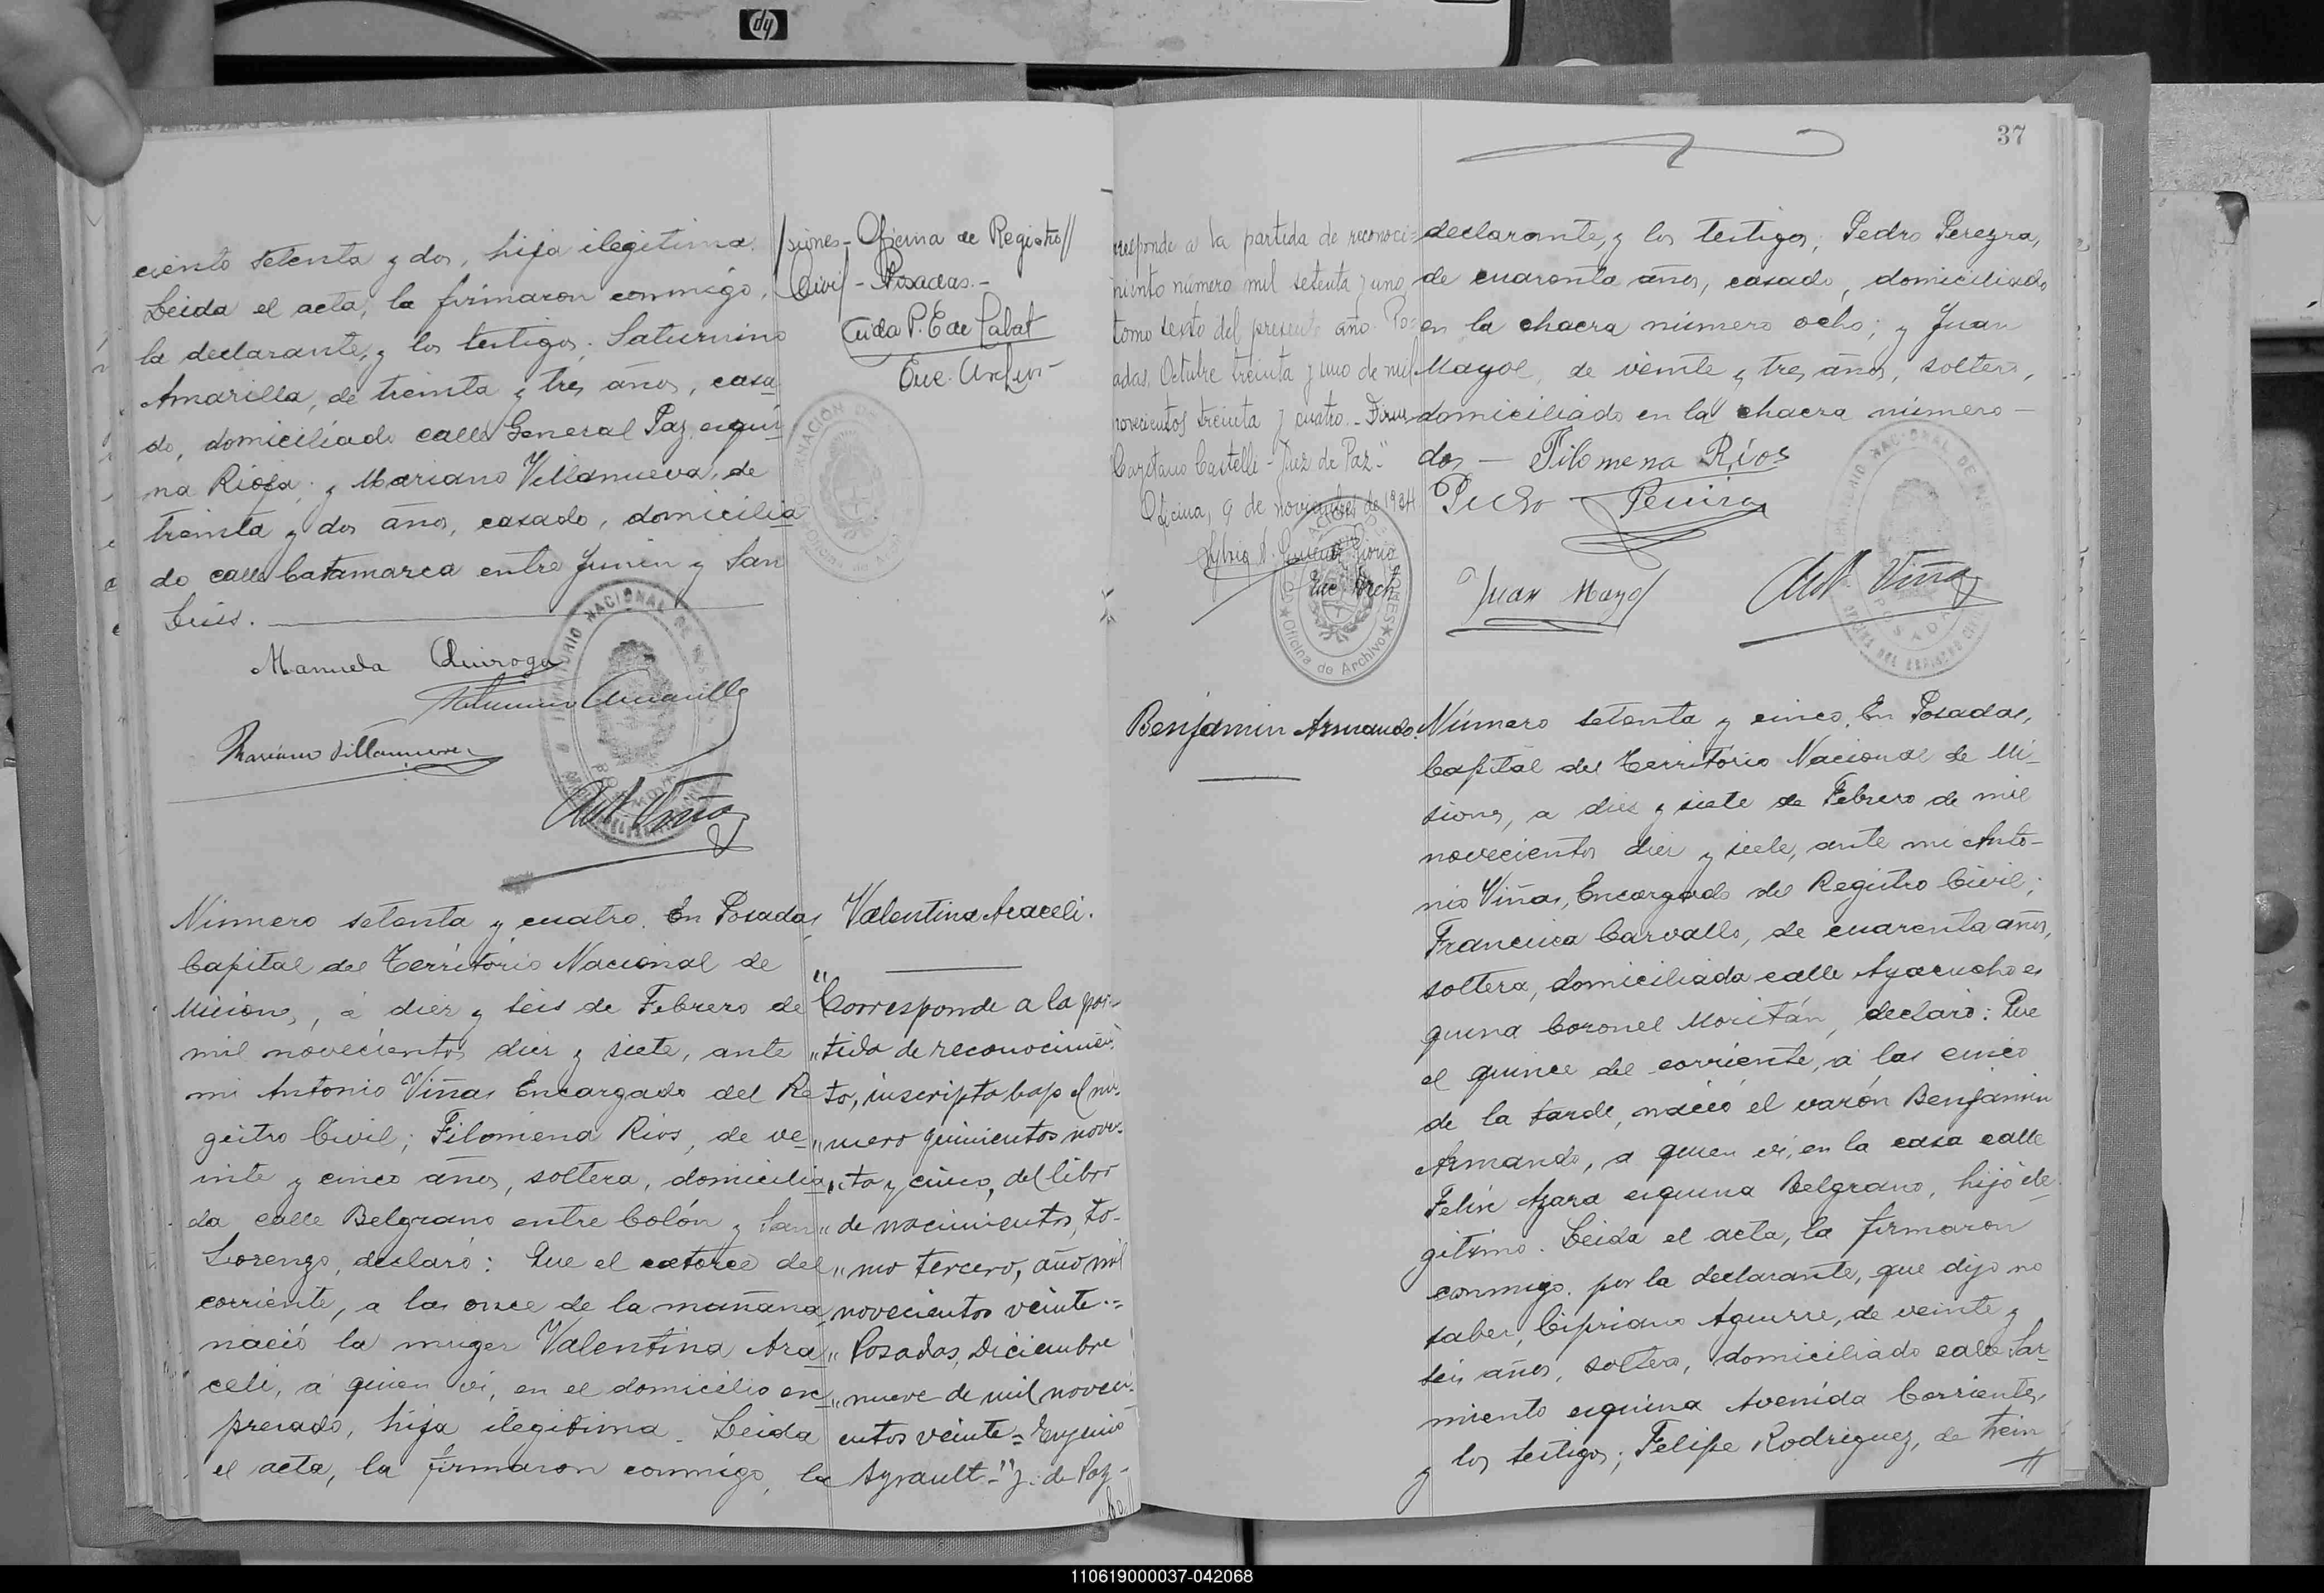 hp
ciento setenta y dos, hija ilegitima.
Leida el acta, la firmaron conmigo,
la declarante, y los testigos: Saturnino
Amarilla, de treinta y tres años, casa
do, domiciliado calle General Paz esqui
na Rioja; y Mariano Villanueva, de
treinta y dos años, casado, domicilia
do calle Catamarca entre Junin y San
Luis.
Manuela Quiroga
Saturnino Amarilla
Mariano Villanueva
Ant. Viñas
siones - Oficina de Registro //
Civil - Posadas. -
Enc. Archivo
Número setenta y cuatro. En Posadas,
Capital del Território Nacional de
Misiones, á diez y seis de Febrero de
mil novecientos diez y siete, ante
mi Antonio Viñas Encargado del Re
gistro Civil; Filomena Rios, de ve
inte y cinco años, soltera, domicilia
da calle Belgrano entre Colón y San
Lorenzo, declaró: Que el catorce del
corriente, a las once de la mañana,
nació la muger Valentina Ara
celi, á quien vi, en el domicilio ex
presado, hija ilegitima. Leida
el acta, la firmaron conmigo, la
Valentina Araceli.
"Corresponde a la par-
" tida de reconocimien
to, inscripta bajo el nú-
" mero quinientos noven-
" ta y cinco, del libro
" de nacimientos, to-
" mo tercero, año mil
novecientos veinte.=
" Posadas, Diciembre
" nueve de mil noveci-
entos veinte = Eugenio
Ayrault -" J. de Paz -
37
rresponde a la partida de reconoci-
miento número mil setenta y uno,
tomo sexto del presente año. Po-
sadas, Octubre treinta y uno de mil
novecientos treinta y cuatro. - Firma
Cayetano Castelli - Juez de Paz."
Oficina, 9 de noviembre de 1934
Enc. Arch
Oficina de Archivo
declarante, y los testigos; Pedro Pereyra,
de cuarenta años, casado, domiciliado
en la chacra número ocho; y Juan
Mayol, de veinte y tres años, soltero,
domiciliado en la chacra número -
dos - Filomena Ríos
Pedro Pereira
Juan Mayol
Ant. Viñas
Benjamin Armando.
Número setenta y cinco. En Posadas,
Capital del Território Nacional de Mi-
siones, a diez y siete de Febrero de mil
novecientos diez y siete, ante mi Anto-
nio Viñas, Encargado del Registro Civil;
Francisca Carvallo, de cuarenta años,
soltera, domiciliada calle Ayacucho es
quina Coronel Moritán, declaró: Que
el quince del corriente, á las cinco
de la tarde, nació el varón Benjamin
Armando, a quien vi, en la casa calle
Felix Azara esquina Belgrano, hijo ile-
gitimo. Leida el acta, la firmaron
conmigo, por la declarante, que dijo no
saber, Cipriano Aguirre, de veinte y
seis años, soltero, domiciliado calle Sar-
miento esquina Avenida Corrientes,
y los testigos; Felipe Rodriguez, de trein
//
110619000037-042068